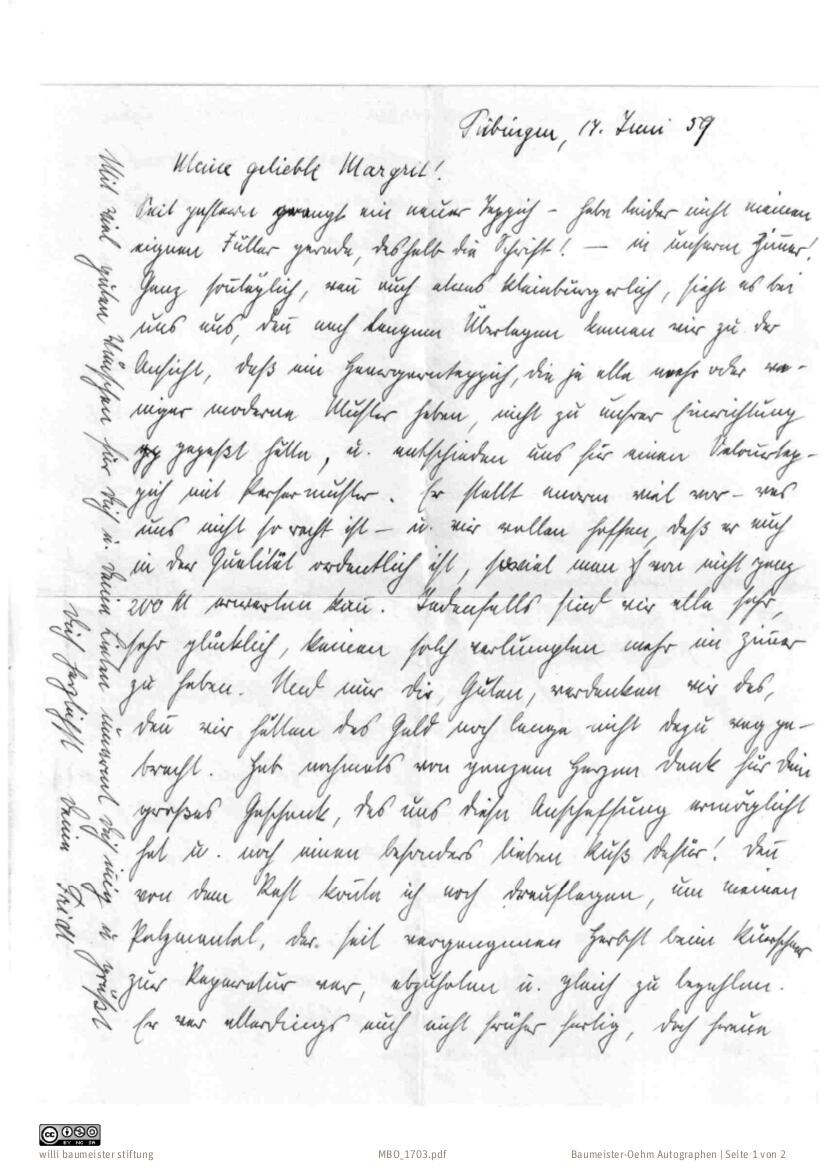 Tübingen, 14. Juni 59
Meine geliebte Margrit!
Seit gestern prangt ein neuer Teppich – habe leider nicht meinen
eignen Füller gerade, deshalb die Schrift! — in unserm Zimmer!
Ganz sonntäglich, wenn auch etwas kleinbürgerlich, sieht es bei
uns aus, denn nach langem Überlegen kamen wir zu der
Ansicht, daß ein Haargarnteppich, die ja alle mehr oder we-
niger moderne Muster haben, nicht zu unsrer Einrichtung
gepaßt hätte, u. entschieden uns für einen Velourtep-
pich mit Persermuster. Er stellt enorm viel vor – was
uns nicht so recht ist – u. wir wollen hoffen, daß er auch
in der Qualität ordentlich ist, soviel man von nicht ganz
200 M erwarten kann. Jedenfalls sind wir alle sehr,
sehr glücklich, keinen solch verlumpten mehr im Zimmer
zu haben. Und nur Dir, Guten, verdanken wir das,
denn wir hätten das Geld noch lange nicht dazu weg ge-
bracht. Hab nochmals von ganzem Herzen Dank für Dein
großes Geschenk, das uns diese Anschaffung ermöglicht
hat u. noch einen besonders lieben Kuß dafür! Denn
von dem Rest konnte ich noch drauflegen, um meinen
Pelzmantel, der seit vergangenen Herbst beim Kürschner
zur Reparatur war, abzuholen u. gleich zu bezahlen.
Er war allerdings auch nicht früher fertig, doch freue
Mit viel guten Wünschen für Dich u. Deine Lieben umarmt Dich innig u. grüßt
Dich herzlichst Deine Fridl
willi baumeister stiftung
MBO_1703.pdf
Baumeister-Oehm Autographen | Seite 1 von 2
CC BY NC SA